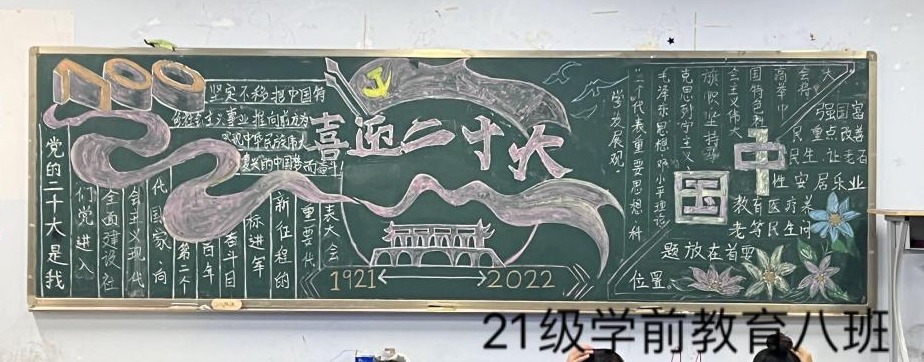 100
坚定不移把中国特
色社会主义事业推向前
实现中华民族伟大
复兴的中国梦而奋斗
喜迎二十大
党的二十大是我
们党进入
全面建设社
会主义现代
国家、向
第二个
百年
奋斗目
标进军
新征程的
重要代
表大会
1921
2022
大
会将
高举中
国特色社
会主义伟大
旗帜坚持马
克思列宁主义
毛泽东思想邓小平理论
三个代表重要思想科
学发展观
中国
强国富
民重点改善
民生、让老百
姓安居乐业
教育医疗养
老等民生问
题放在首要
位置。
21级学前教育八班